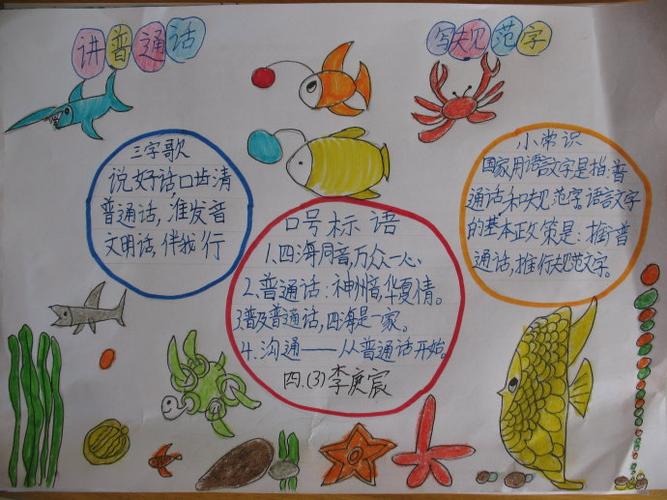 讲普通话
写规范字
三字歌
说好话口齿清
普通话,准发音
文明话,伴我行
口号标语
1.四海同音,万众一心。
2.普通话:神州音,华夏情。
3.普及普通话,四海是一家。
4.沟通——从普通话开始。
四.(3)李庚宸
小常识
国家用语言文字是指:普
通话和规范字。语言文字
的基本政策是:推广普
通话,推行规范文字。